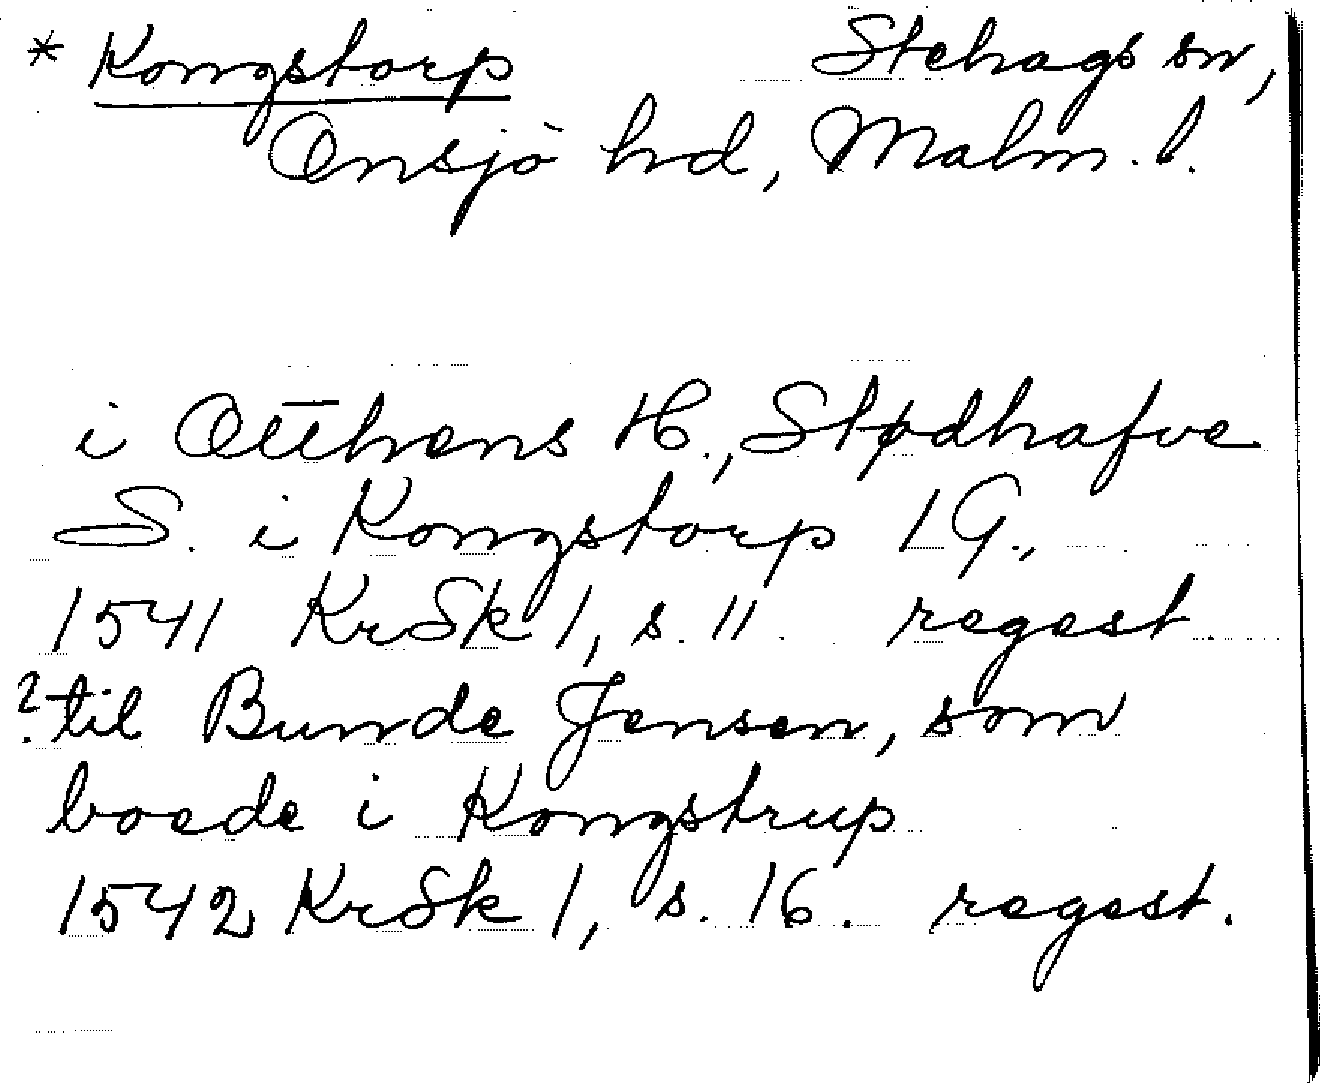 * Kongstorp Stehags sn,
Onsjö hd, Malm. l.
i Otthens H., Stødhafve
S. i Kongstorp 1 G.,
1541 KrSk 1, s. 11. regest.
? til Bunde Jensen, som
boede i Kongstrup
1542 KrSk 1, s. 16. regest.